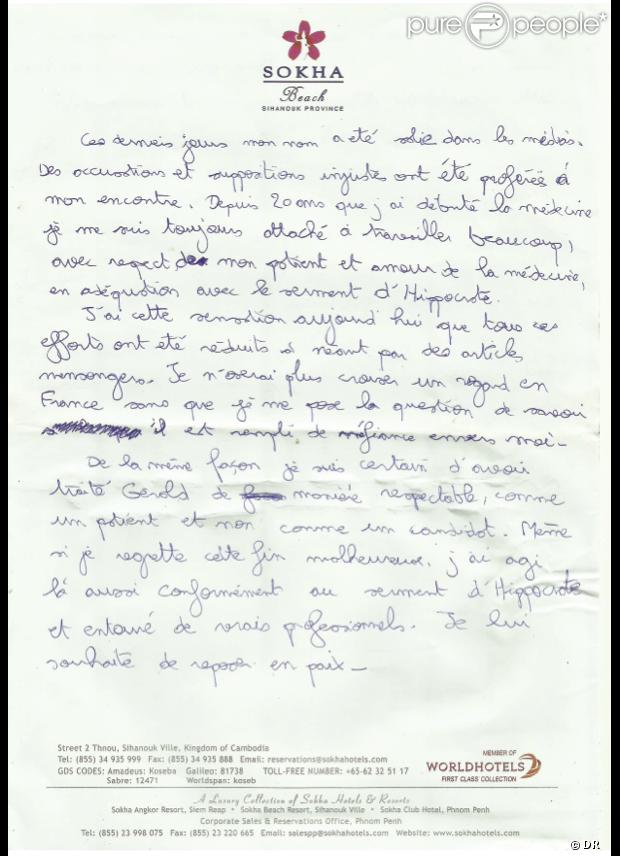 pure people
SOKHA
Beach
SIHANOUK PROVINCE
Ces derniers jours mon nom a été salie dans les médias.
Des accusations et suppositions injustes ont été proférées à
mon encontre. Depuis 20 ans que j'ai débuté la médecine
je me suis toujours attaché à travailler beaucoup,
avec respect de mon patient et amour de la médecine,
en adéquation avec le serment d'Hippocrate.
J'ai cette sensation aujourd'hui que tous ces
efforts ont été réduits à néant par des articles
mensongers. Je n'oserai plus croiser un regard en
France sans que je me pose la question de savoir
s'il est rempli de méfiance envers moi-
De la même façon je suis certain d'avoir
traité Gérald de manière respectable, comme
un patient et non comme un candidat. Même
si je regrette cette fin malheureuse, j'ai agi
là aussi conformément au serment d'Hippocrate
et entouré de vrais professionnels. Je lui
souhaite de reposer en paix-
Street 2 Thnou, Sihanouk Ville, Kingdom of Cambodia
Tel: (855) 34 935 999 Fax: (855) 34 935 888 Email: reservations@sokhahotels.com
GDS CODES: Amadeus: Koseba Galileo: 81738 TOLL-FREE NUMBER: +65-62 32 51 17
Sabre: 12471 Worldspan: koseb
MEMBER OF
WORLDHOTELS
FIRST CLASS COLLECTION
A Luxury Collection of Sokha Hotels & Resorts
Sokha Angkor Resort, Siem Reap • Sokha Beach Resort, Sihanouk Ville • Sokha Club Hotel, Phnom Penh
Corporate Sales & Reservations Office, Phnom Penh
Tel: (855) 23 998 075 Fax: (855) 23 220 665 Email: salespp@sokhahotels.com Website: www.sokhahotels.com
© DR